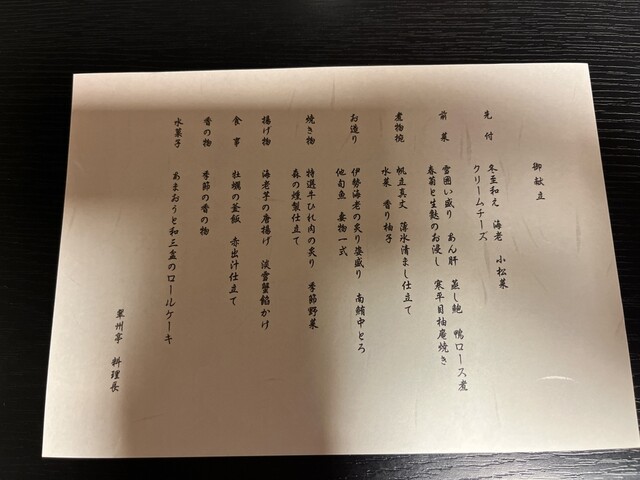 御献立
先付 冬至和え 海老 小松菜
クリームチーズ
前菜 雪囲い盛り あん肝 蒸し鮑 鴨ロース煮
春菊と生麩のお浸し 寒平目柚庵焼き
煮物椀 帆立真丈 薄氷清まし仕立て
水菜 香り柚子
お造り 伊勢海老の炙り姿盛り 南鮪中とろ
他旬魚 妻物一式
焼き物 特選牛ひれ肉の炙り 季節野菜
森の燻製仕立て
揚げ物 海老芋の唐揚げ 淡雪蟹餡かけ
食事 牡蠣の釜飯 赤出汁仕立て
香の物 季節の香の物
水菓子 あまおうと和三盆のロールケーキ
翠州亭 料理長